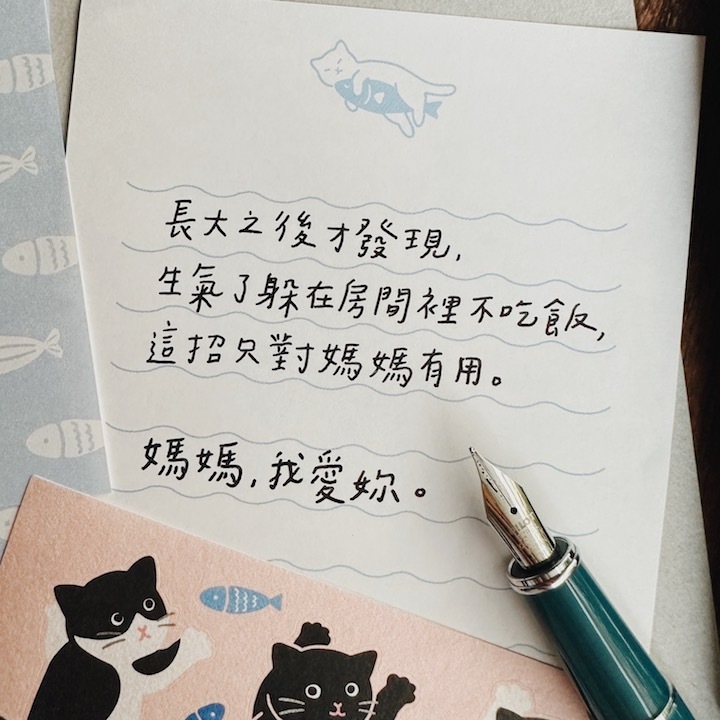 長大之後才發現,
生氣了躲在房間裡不吃飯,
這招只對媽媽有用。
媽媽,我愛妳。